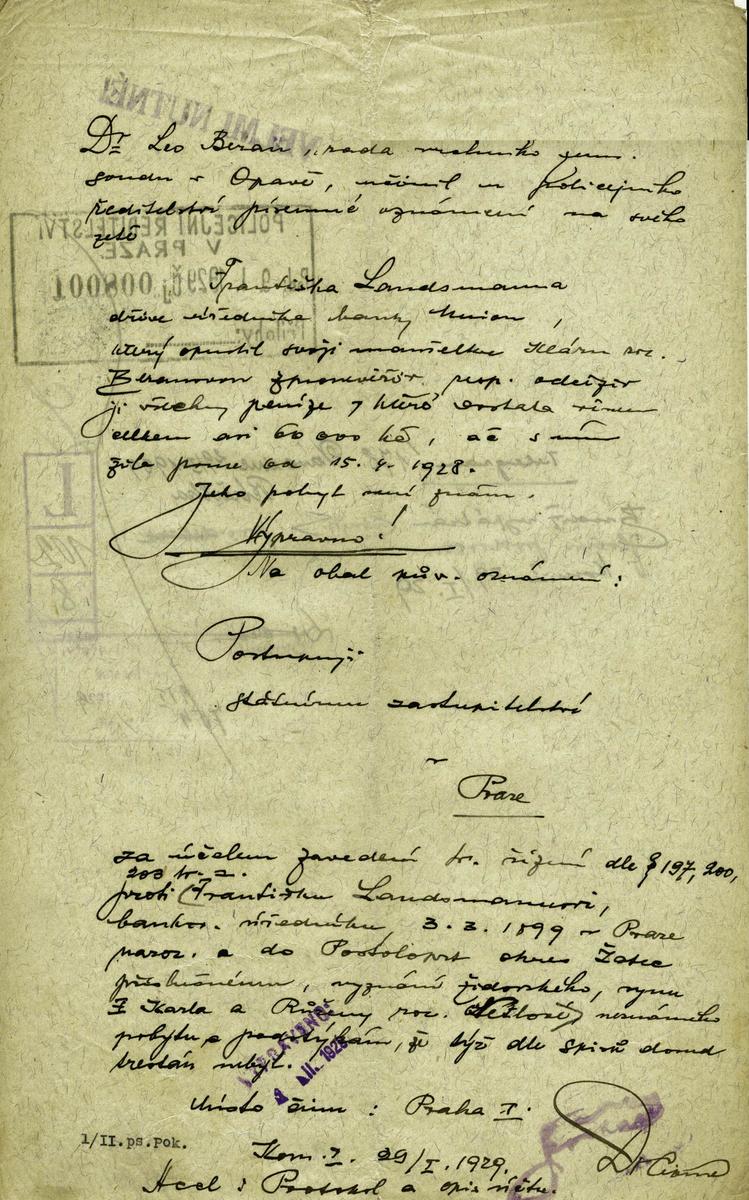 VELMI NUTNÉ!
Dr Leo Beran, rada vrchního zem.
soudu v Opavě, učinil u policejního
ředitelství písemné oznámení na svého
zetě
POLICEJNÍ ŘEDITELSTVÍ
V PRAZE
1929 čj 008001
Přílohy:
Františka Landsmanna
dříve úředníka banky Union,
který opustil svoji manželku Kláru roz.
Beranovou zpronevěřiv resp. odciziv
jí všechny peníze, které dostala věnem
celkem asi 60 000 Kč, ač s ním
žila pouze od 15. 4. 1928.
Jeho pobyt není znám.
Vypravno!
Na obal pův. oznámení:
Postupuji
státnímu zastupitelství
v
Praze
za účelem zavedení tr. řízení dle § 197, 200,
203 tr. z.
proti Františku Landsmannovi,
bankov. úředníku, 3. 3. 1899 v Praze
naroz. a do Postoloprt okres Žatec
příslušnému, vyznání židovského, synu
Karla a Růženy roz. neznámého
pobytu, a podotýkám, že týž dle spisů dosud
trestán nebyl.
VYPRAVENO:
Místo činu: Praha I.
1/II.ps.pok.
Kom. I. 29/I. 1929.
Acel: Protokol a opis účtu.